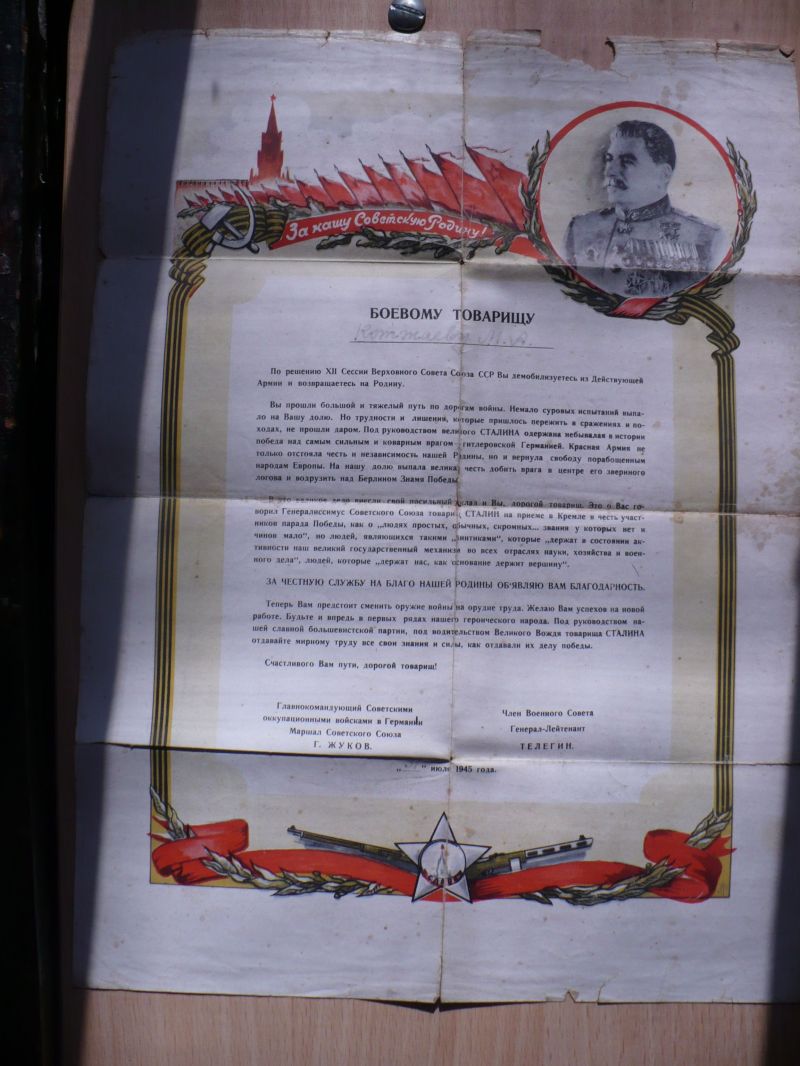 За нашу Советскую Родину!
БОЕВОМУ ТОВАРИЩУ
М. А.
По решению XII Сессии Верховного Совета Союза ССР Вы демобилизуетесь из Действующей
Армии и возвращаетесь на Родину.
Вы прошли большой и тяжелый путь по дорогам войны. Немало суровых испытаний выпа-
ло на Вашу долю. Но трудности и лишения, которые пришлось пережить в сражениях и по-
ходах, не прошли даром. Под руководством великого СТАЛИНА одержана небывалая в истории
победа над самым сильным и коварным врагом - гитлеровской Германией. Красная Армия не
только отстояла честь и независимость нашей Родины, но и вернула свободу порабощенным
народам Европы. На нашу долю выпала великая честь добить врага в центре его звериного
логова и водрузить над Берлином Знамя Победы.
В это великое дело внесли свой посильный вклад и Вы, дорогой товарищ. Это о Вас го-
ворил Генералиссимус Советского Союза товарищ СТАЛИН на приеме в Кремле в честь участ-
ников парада Победы, как о „людях простых, обычных, скромных... звания у которых нет и
чинов мало", но людей, являющихся такими „винтиками", которые „держат в состоянии ак-
тивности наш великий государственный механизм во всех отраслях науки, хозяйства и воен-
ного дела", людей, которые „держат нас, как основание держит вершину".
ЗА ЧЕСТНУЮ СЛУЖБУ НА БЛАГО НАШЕЙ РОДИНЫ ОБ'ЯВЛЯЮ ВАМ БЛАГОДАРНОСТЬ.
Теперь Вам предстоит сменить оружие войны на орудие труда. Желаю Вам успехов на новой
работе. Будьте и впредь в первых рядах нашего героического народа. Под руководством на-
шей славной большевистской партии, под водительством Великого Вождя товарища СТАЛИНА
отдавайте мирному труду все свои знания и силы, как отдавали их делу победы.
Счастливого Вам пути, дорогой товарищ!
Главнокомандующий Советскими
оккупационными войсками в Германии
Маршал Советского Союза
Г. ЖУКОВ.
Член Военного Совета
Генерал-Лейтенант
ТЕЛЕГИН.
„ " июля 1945 года.